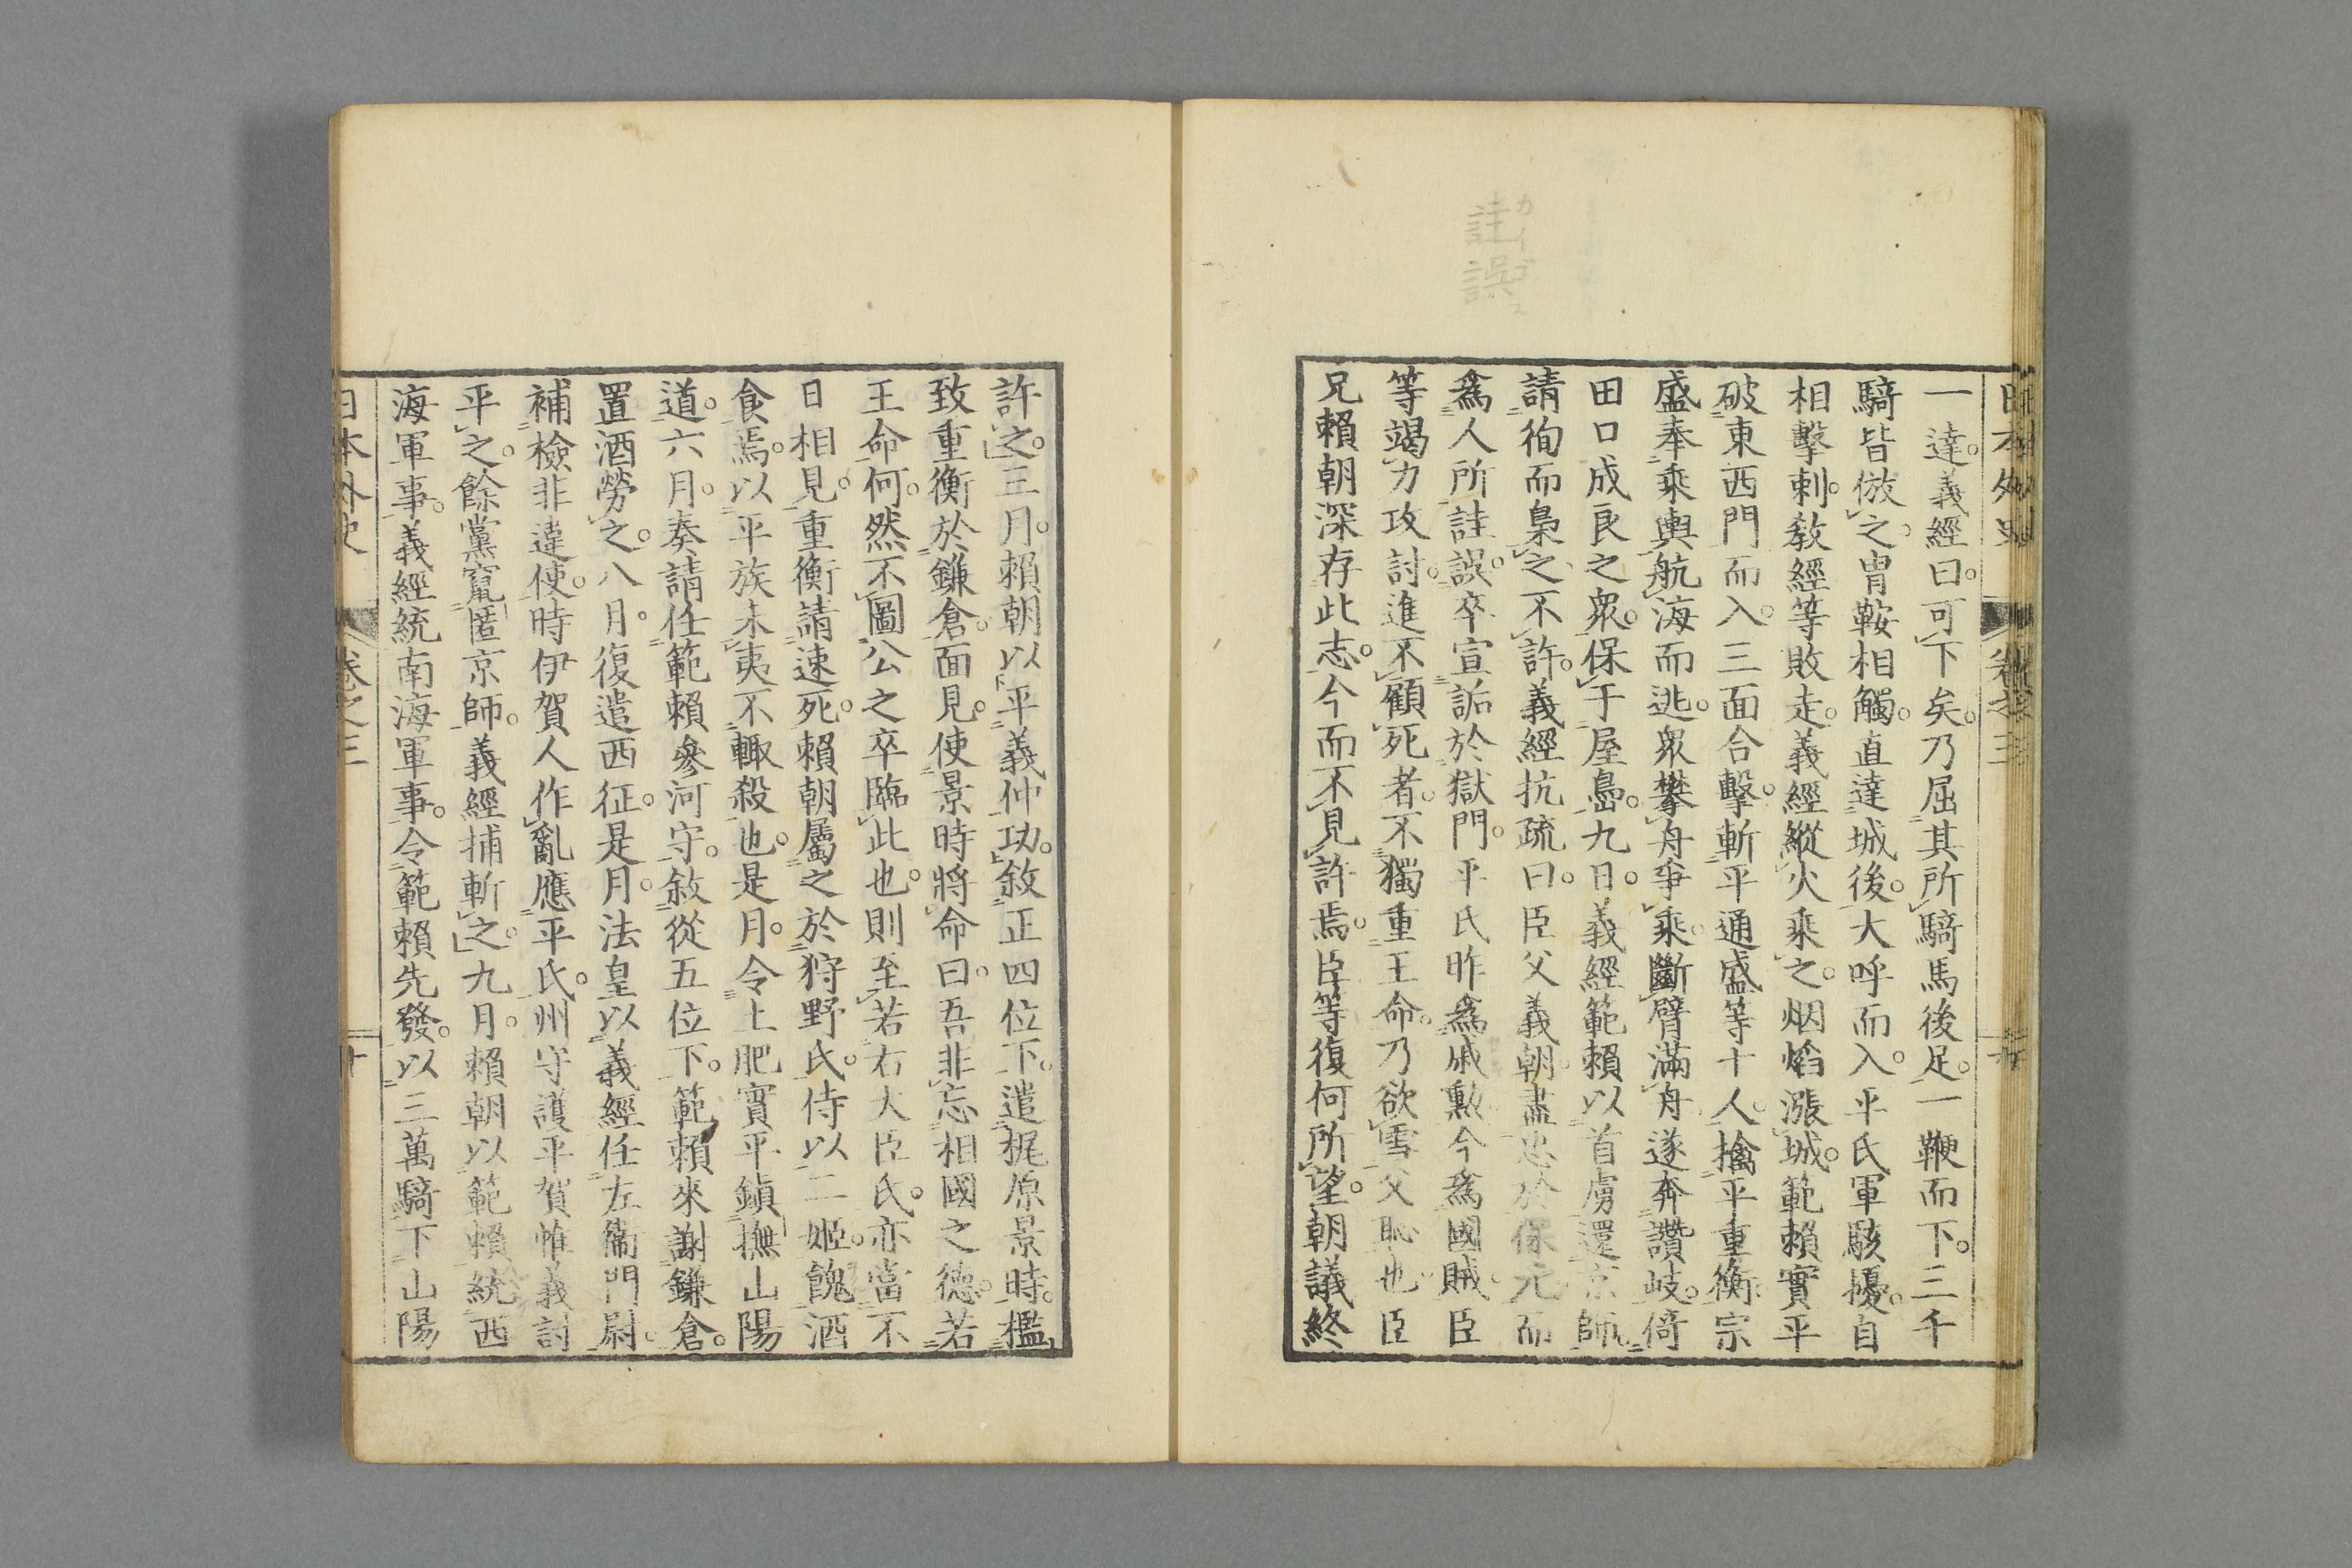 カイゴス
註誤
日本外史 卷之三
一達。義經曰。可下矣。乃屈其所騎馬後足。一鞭而下。三千
騎皆倣之。冑鞍相觸。直達城後。大呼而入。平氏軍駭擾。自
相擊刺。教經等敗走。義經縱火乘之。烟焰漲城。範賴實平
破東西門而入。三面合擊。斬平通盛等十人。擒平重衡。宗
盛奉乘輿航海而逃。眾攀舟爭乘。斷臂滿舟。遂奔讚岐。倚
田口成良之眾。保于屋島。九日。義經範賴以首虜還京師。
請徇而梟之。不許。義經抗疏曰。臣父義朝。盡忠於保元。而
爲人所註誤。卒宣詬於獄門。平氏昨爲戚勲。今爲國賊。臣
等竭力攻討。進不顧死者。不獨重王命。乃欲雪父恥也。臣
兄賴朝深存此志。今而不見許焉。臣等復何所望。朝議終
許之。三月。賴朝以平義仲功。敘正四位下。遣梶原景時。檻
致重衡於鎌倉。面見。使景時將命曰。吾非忘相國之德。若
王命何。然不圖公之卒臨此也。則至若右大臣氏。亦當不
日相見。重衡請速死。賴朝屬之於狩野氏。侍以二姬。餽酒
食焉。以平族未夷。不輙殺也。是月。令土肥實平鎭撫山陽
道。六月。奏請任範賴參河守。敘從五位下。範賴來謝鎌倉。
置酒勞之。八月。復遣西征。是月。法皇以義經任左衞門尉。
補檢非違使。時伊賀人作亂應平氏。州守護平賀惟義討
平之。餘黨竄匿京師。義經捕斬之。九月。賴朝以範賴統西
海軍事。義經統南海軍事。令範賴先發。以三萬騎下山陽
日本外史 卷之三